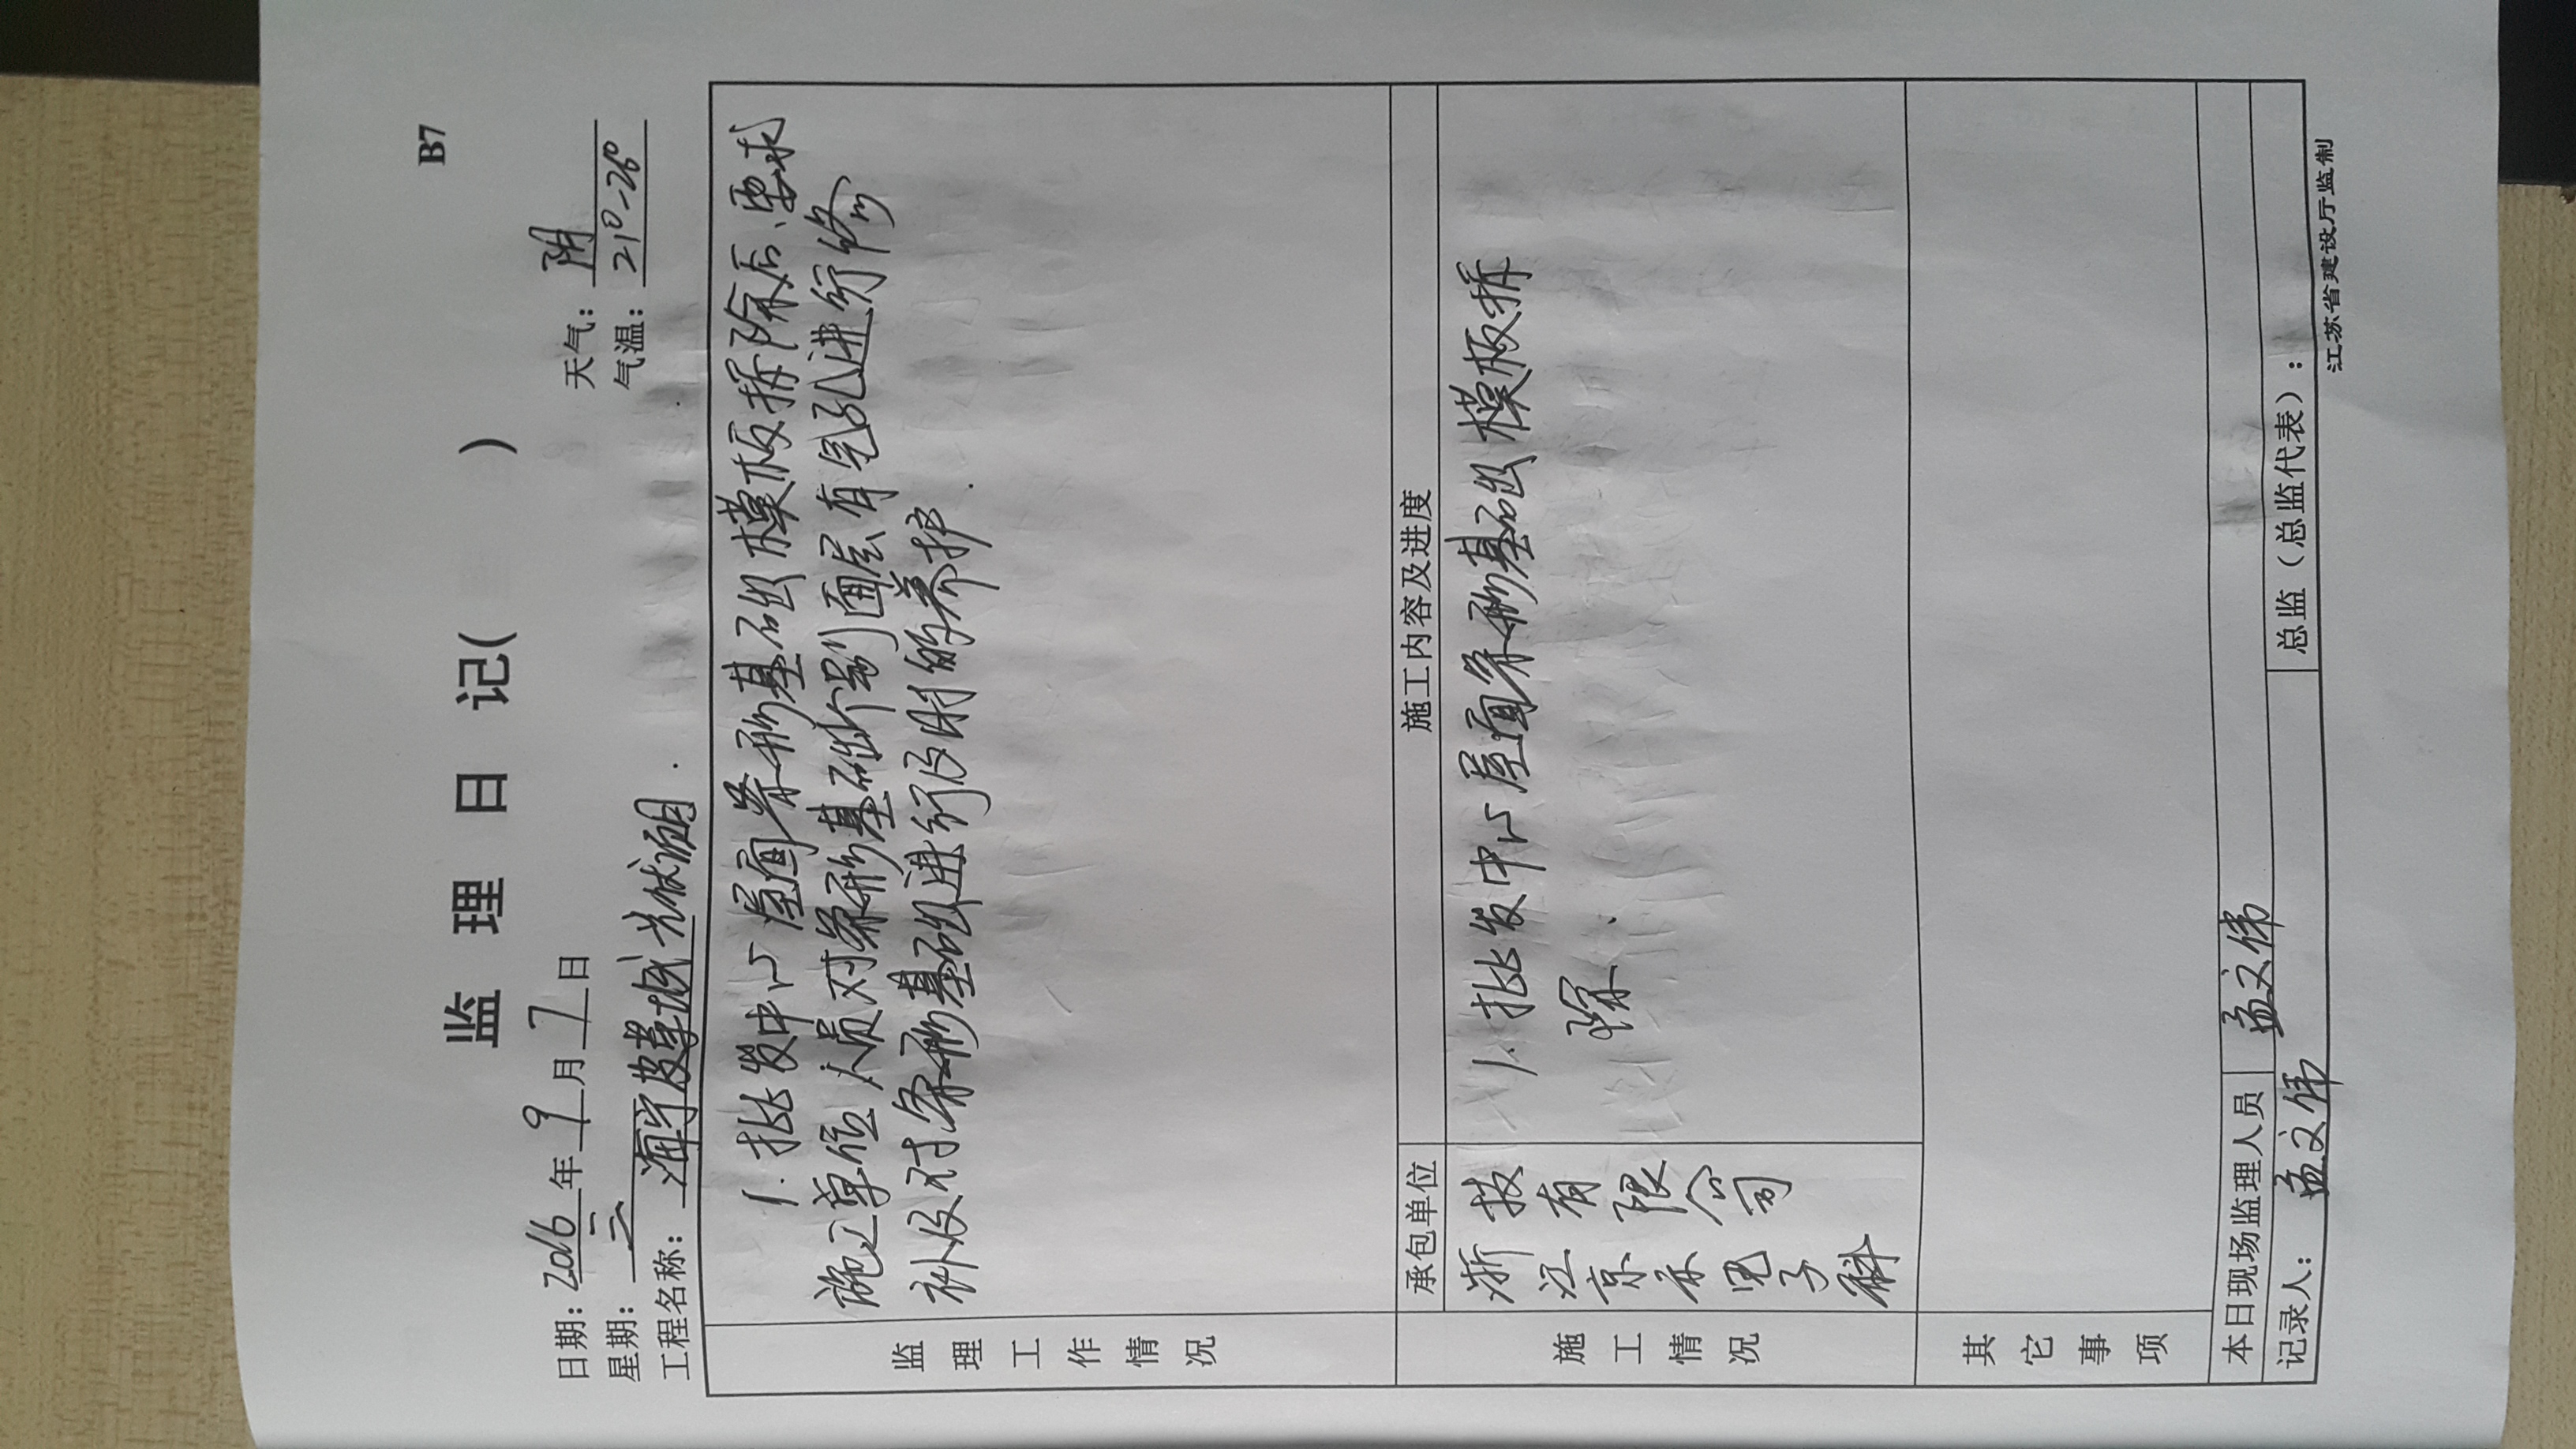 B7
监 理 日 记( )
日期: 2016 年 9 月 7 日 天气: 阴
星期: 三 气温: 21°-26°
工程名称: 海宁皮革城光伏项目.
监理工作情况
1. 批发中心屋面条形基础模板拆除后,要求
施工单位人员对条形基础个别面层有气孔进行修
补及对条形基础进行及时的养护.
施工情况
承包单位 施工内容及进度
浙江京禾电子科
技有限公司
1. 批发中心屋面条形基础模板拆
除.
其它事项
本日现场监理人员 孟文伟
记录人: 孟文伟 总监(总监代表):
江苏省建设厅监制